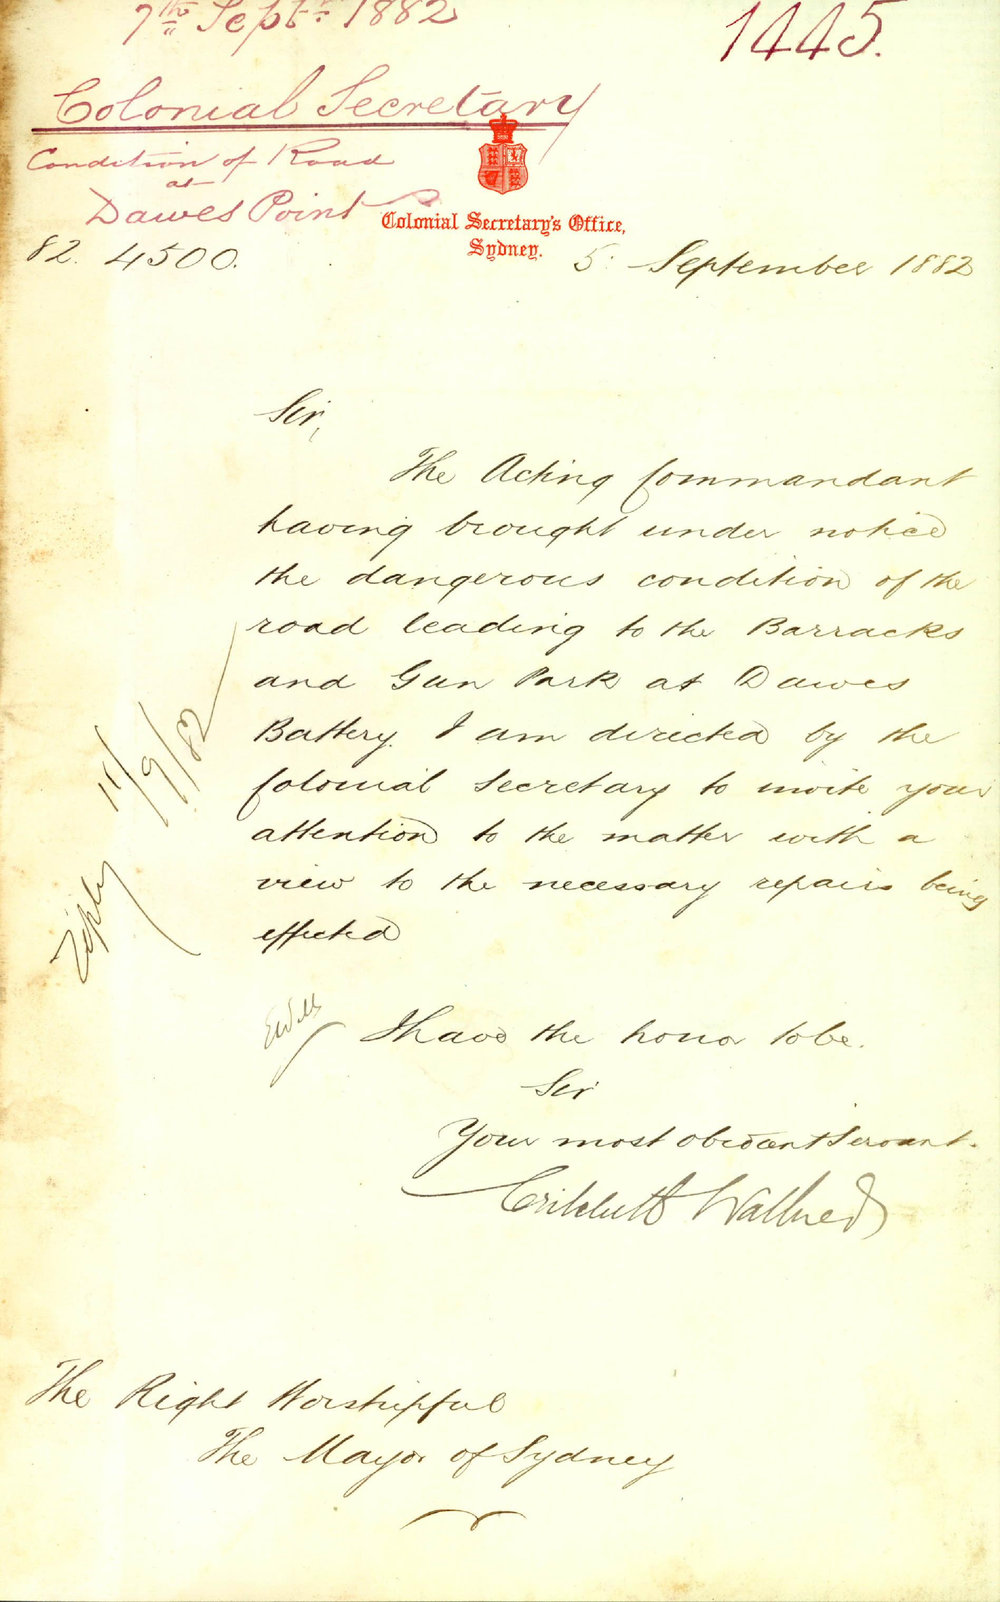 7th Septr 1882
1445.
Colonial Secretary
Condition of Road
at
Dawes Point
Colonial Secretary's Office,
Sydney.
82. 4500.
5 September 1882
Sir,
The Acting Commandant
having brought under notice
the dangerous condition of the
road leading to the Barracks
and Gun Park at Dawes
Battery. I am directed by the
Colonial Secretary to invite your
attention to the matter with a
view to the necessary repairs being
effected
Reply 11/9/82
I have the honor to be.
Sir
Your most obedient Servant.
Critchett Walker
The Right Worshipful
The Mayor of Sydney